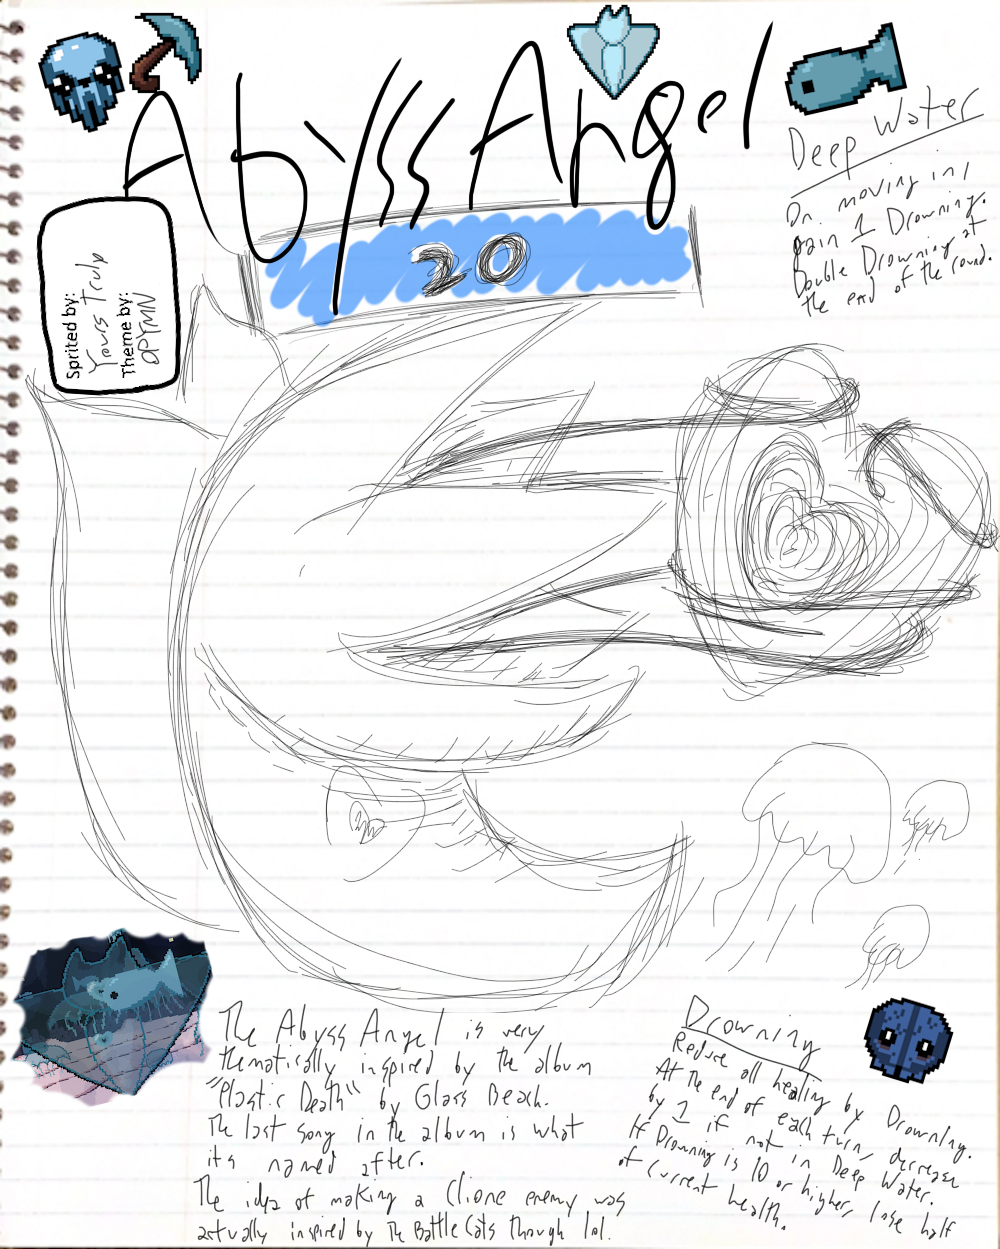 Abyss Angel
20
Sprited by:
Yours Trulp
Theme by:
OPYMN
Deep Water
On moving in,
gain 1 Drowning.
Double Drowning at
the end of the round.
The Abyss Angel is very
thematically inspired by the album
"Plastic Death" by Glass Beach.
The last song in the album is what
its named after.
The idea of making a Clione enemy was
actually inspired by The Battle Cats though lol.
Drowning
Reduce all healing by Drowning.
At the end of each turn, decrease
by 1 if not in Deep Water.
If Drowning is 10 or higher, lose half
of current health.